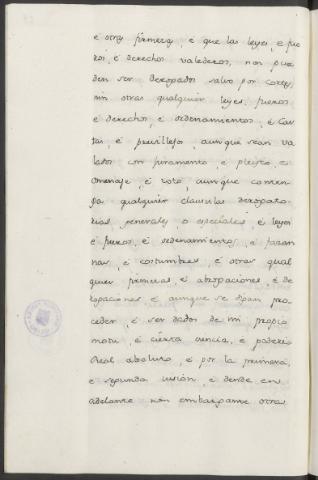 é otras firmezas, é que las leyes, é fue
ros, é derechos valederos, non pue
den ser derogados salvo por cortes,
nin otras qualquier leyes, fueros
é derechos, é ordenamientos, é Car
tas, é previllejos, aunque sean va
lados con juramento, é pleyto, é
omenaje, é voto, aunque conten
ga qualquier clausulas derogato
rias generales, o especiales, é leyes
é fueros, é ordenamientos, é fazañ
nas, é costumbres, é otras qual
quier firmezas, é abrogaciones, é de
rogaciones é aunque se digan pro
ceder, é ser dados de mi propio
motu, é cierta ciencia, é poderio
Real absoluto, é por la primera,
é segunda jusion, é dende en
adelante non embargante otras